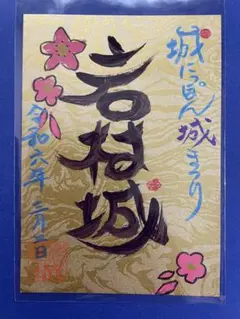 城にっぽん城まつり
岩村城
令和六年二月二日